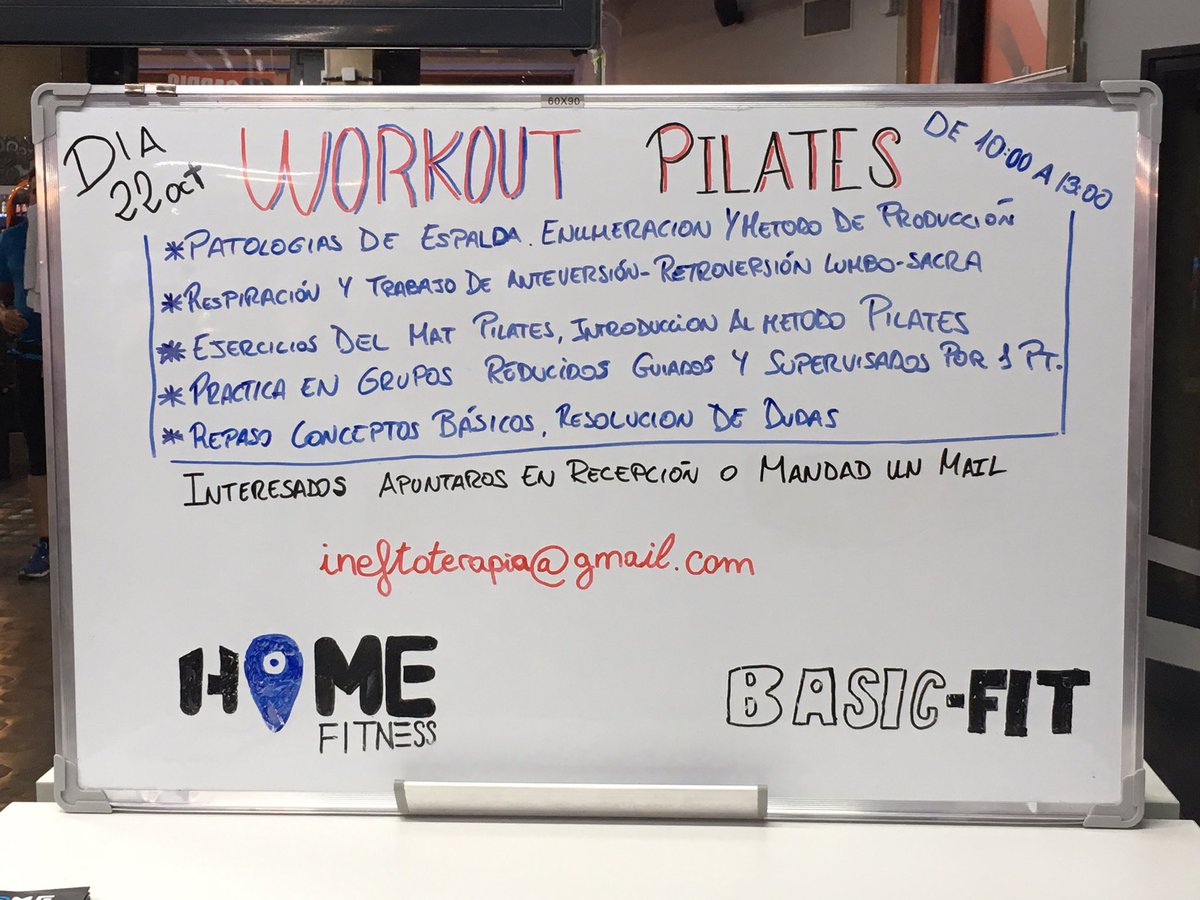 60X90
DIA
22 oct
WORKOUT PILATES
DE 10:00 A 13:00
* PATOLOGIAS DE ESPALDA. ENUMERACION Y METODO DE PRODUCCIÓN
* RESPIRACIÓN Y TRABAJO DE ANTEVERSIÓN-RETROVERSIÓN LUMBO-SACRA
* EJERCICIOS DEL MAT PILATES, INTRODUCCION AL METODO PILATES
* PRACTICA EN GRUPOS REDUCIDOS GUIADOS Y SUPERVISADOS POR 1 PT.
* REPASO CONCEPTOS BÁSICOS, RESOLUCION DE DUDAS
INTERESADOS APUNTAROS EN RECEPCIÓN O MANDAD UN MAIL
ineftoterapia@gmail.com
HOME
FITNESS
BASIC-FIT